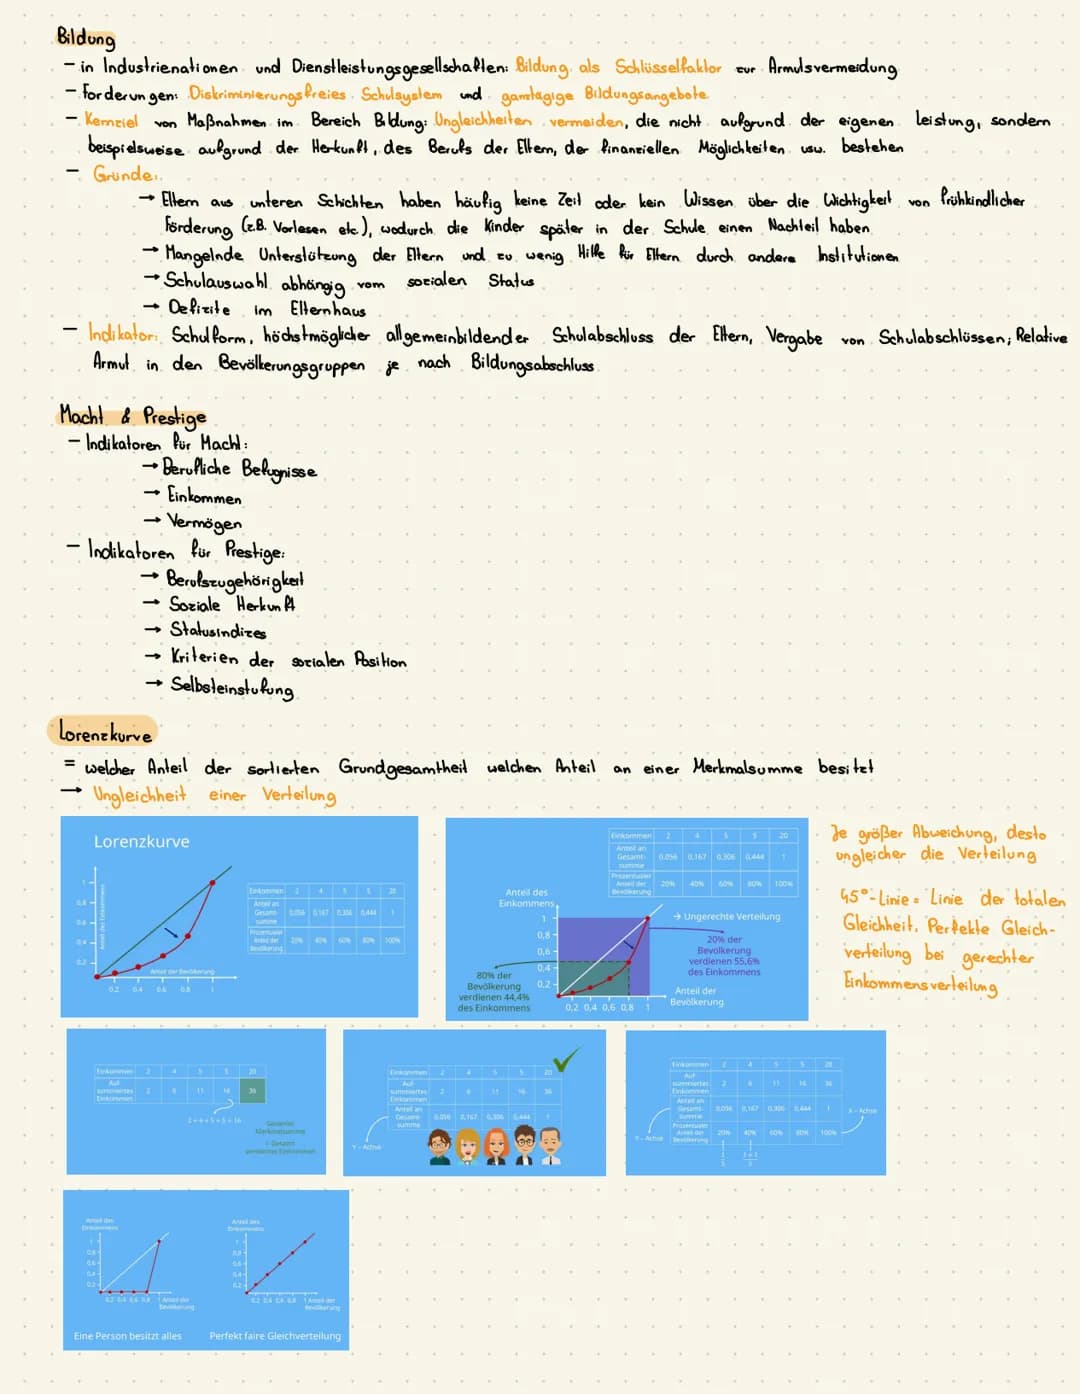 Bildung
- in Industrienationen und Dienstleistungsgesellschaften: Bildung als Schlüsselfaktor zur Armutsvermeidung
- Forderungen: Diskriminierungsfreies Schulsystem und ganztägige Bildungsangebote
- Kernziel von Maßnahmen im Bereich Bildung: Ungleichheiten vermeiden, die nicht aufgrund der eigenen Leistung, sondern
beispielsweise aufgrund der Herkunft, des Berufs der Eltern, der finanziellen Möglichkeiten usw. bestehen
- Gründe:
→ Eltern aus unteren Schichten haben häufig keine Zeit oder kein Wissen über die Wichtigkeit von frühkindlicher
Förderung (z.B. Vorlesen etc.), wodurch die Kinder später in der Schule einen Nachteil haben
→ Mangelnde Unterstützung der Eltern und zu wenig Hilfe für Eltern durch andere Institutionen
→ Schulauswahl abhängig vom sozialen Status
→ Defizite im Elternhaus
- Indikator: Schulform, höchstmöglicher allgemeinbildender Schulabschluss der Eltern, Vergabe von Schulabschlüssen; Relative
Armut in den Bevölkerungsgruppen je nach Bildungsabschluss
Macht & Prestige
- Indikatoren für Macht:
→ Berufliche Befugnisse
→ Einkommen
→ Vermögen
- Indikatoren für Prestige:
→ Berufszugehörigkeit
→ Soziale Herkunft
→ Statusindizes
→ Kriterien der sozialen Position
→ Selbsteinstufung
Lorenzkurve
= welcher Anteil der sortierten Grundgesamtheit welchen Anteil an einer Merkmalsumme besitzt
→ Ungleichheit einer Verteilung
Lorenzkurve
1
0,8
0,6
0,4
0,2
Anteil des Einkommens
Anteil der Bevölkerung
0,2 0,4 0,6 0,8 1
Einkommen 2 4 5 5 20
Anteil an Gesamt- summe 0,056 0,167 0,306 0,444 1
Prozentualer Anteil der Bevölkerung 20% 40% 60% 80% 100%
Einkommen 2 4 5 5 20
Anteil an Gesamt- summe 0,056 0,167 0,306 0,444 1
Prozentualer Anteil der Bevölkerung 20% 40% 60% 80% 100%
Anteil des
Einkommens
1
0,8
0,6
0,4
0,2
→ Ungerechte Verteilung
20% der
Bevölkerung
verdienen 55,6%
des Einkommens
80% der
Bevölkerung
verdienen 44,4%
des Einkommens
Anteil der
Bevölkerung
0,2 0,4 0,6 0,8 1
Je größer Abweichung, desto
ungleicher die Verteilung
45°-Linie = Linie der totalen
Gleichheit, Perfekte Gleich-
verteilung bei gerechter
Einkommensverteilung
Einkommen 2 4 5 5 20
Auf- summiertes Einkommen 2 6 11 16 36
2+4+5+5=16
Gesamte
Merkmalssumme
= Gesamt
verdientes Einkommen
Einkommen 2 4 5 5 20
Auf- summiertes Einkommen 2 6 11 16 36
Anteil an Gesamt- summe 0,056 0,167 0,306 0,444 1
Y - Achse
Einkommen 2 4 5 5 20
Auf- summiertes Einkommen 2 6 11 16 36
Anteil an Gesamt- summe 0,056 0,167 0,306 0,444 1
Prozentualer Anteil der Bevölkerung 20% 40% 60% 80% 100%
X - Achse
Y - Achse
1/5 1+1/5
Anteil des
Einkommens
1
0,8
0,6
0,4
0,2
0,2 0,4 0,6 0,8 1 Anteil der
Bevölkerung
Eine Person besitzt alles
Anteil des
Einkommens
1
0,8
0,6
0,4
0,2
0,2 0,4 0,6 0,8 1 Anteil der
Bevölkerung
Perfekt faire Gleichverteilung